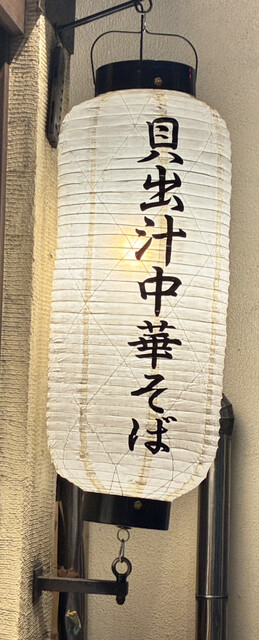 貝出汁中華そば